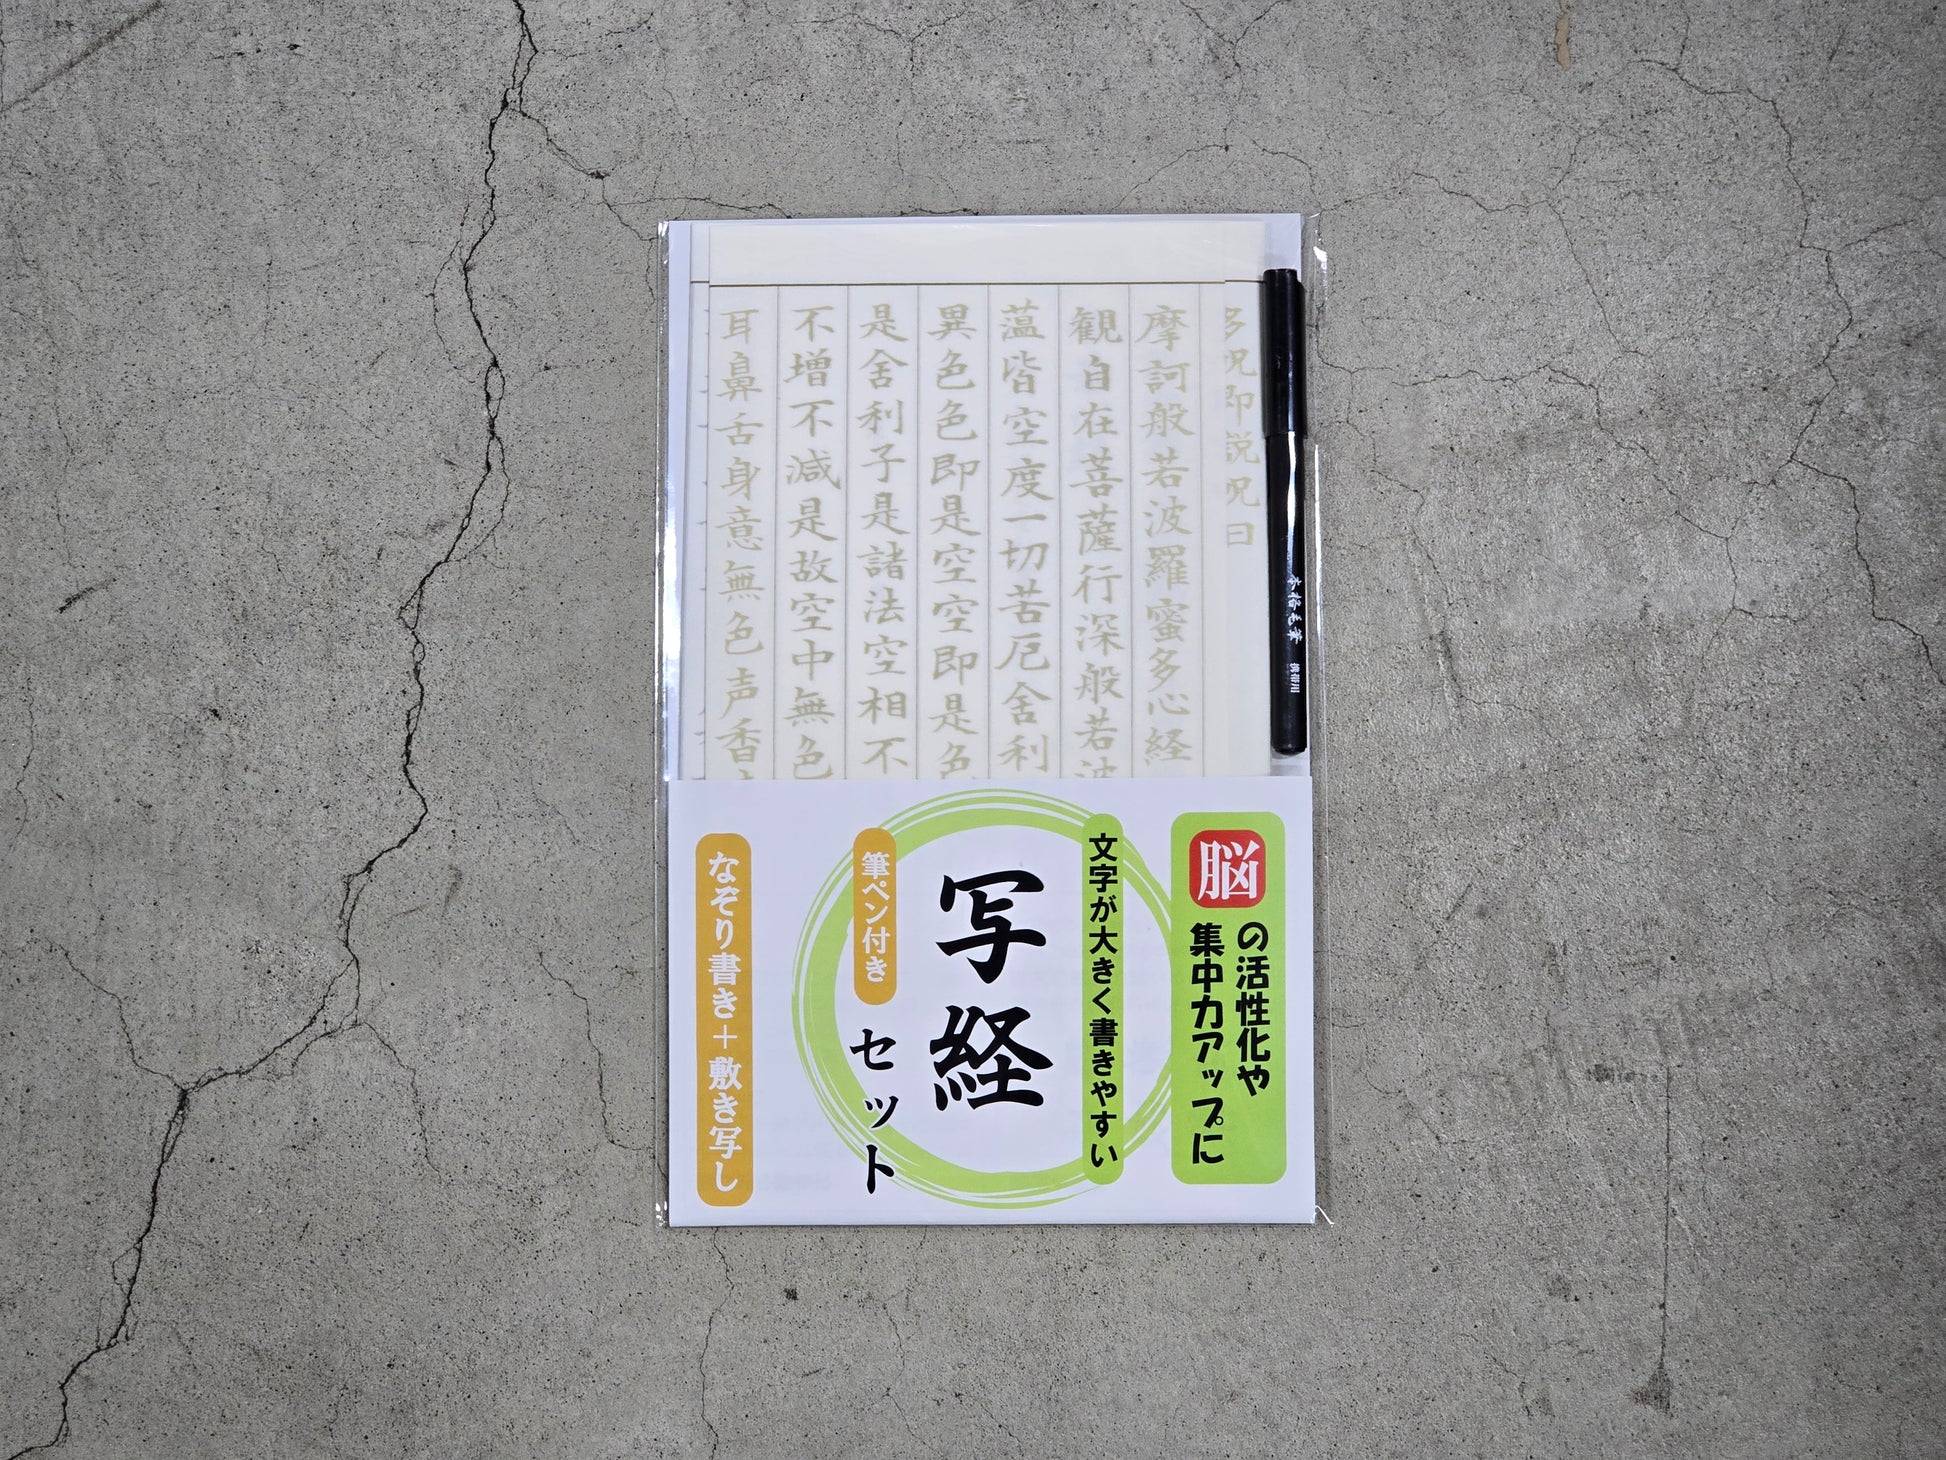 多呪即説呪曰
摩訶般若波羅蜜多心経
観自在菩薩行深般若波
蘊皆空度一切苦厄舎利
異色色即是空空即是色
是舎利子是諸法空相不
不増不減是故空中無色
耳鼻舌身意無色声香
本格毛筆 携帯用
脳の活性化や
集中力アップに
文字が大きく書きやすい
写経
セット
筆ペン付き
なぞり書き＋敷き写し